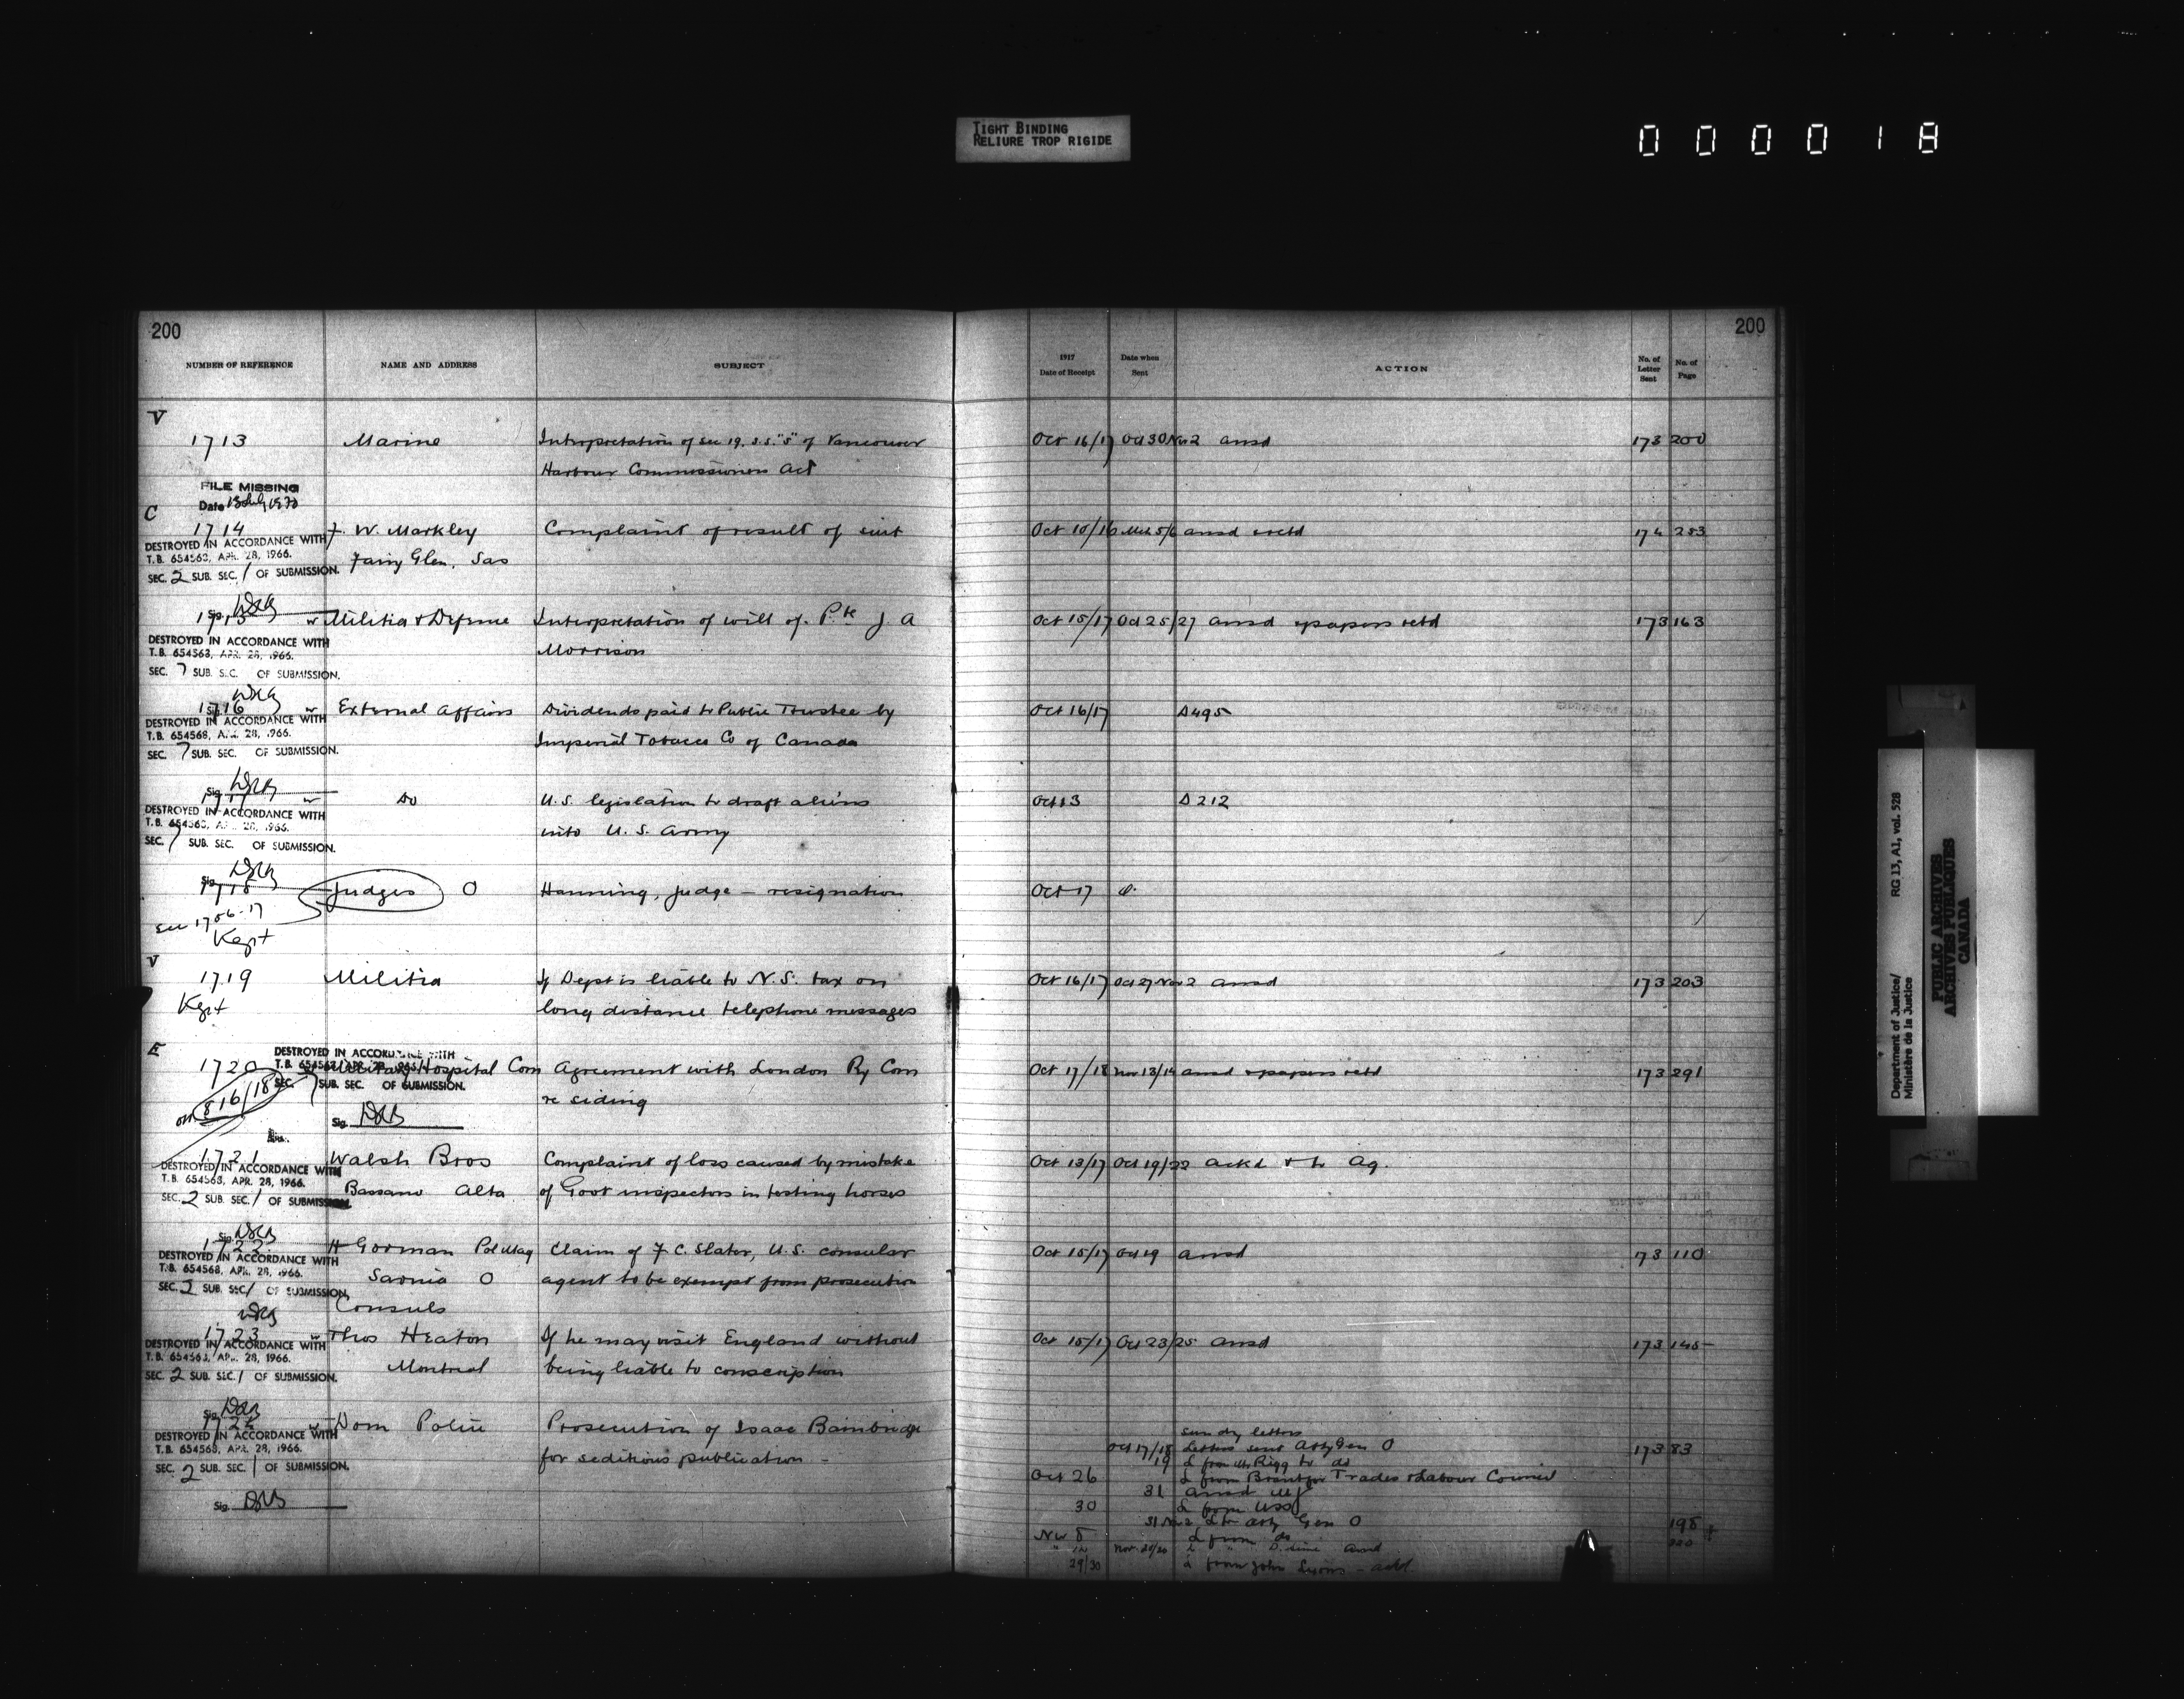 TIGHT BINDING
RELIURE TROP RIGIDE
000018
200
200
NUMBER OF REFERENCE NAME AND ADDRESS SUBJECT
1917 Date of Receipt Date when Sent ACTION No. of Letter Sent No. of Page
V
1713 Marine Interpretation of sec 19, s.s. "S" of Vancouver Oct 16/17 Oct 30 Nov 2 ansd 173 200
Harbour Commissioners Act
FILE MISSING
Date 13 July 1970
C
1714 F. W. Markley Complaint of result of suit Oct 10/16 ansd 174 253
DESTROYED IN ACCORDANCE WITH
T.B. 654563, APR. 28, 1966.
Fairy Glen, Sas
SEC. 2 SUB. SEC. 1 OF SUBMISSION.
Sig.
1715 Militia & Defense Interpretation of will of Pte J. A Oct 15/17 Oct 25/27 ansd & papers retd 173 163
Morrison
DESTROYED IN ACCORDANCE WITH
T.B. 654563, APR. 28, 1966.
SEC. 7 SUB. SEC. OF SUBMISSION.
Sig.
1716 External Affairs Dividends paid to Public Trustee by Oct 16/17 D495
DESTROYED IN ACCORDANCE WITH
T.B. 654568, APR. 28, 1966.
Imperial Tobacco Co of Canada
SEC. 7 SUB. SEC. OF SUBMISSION.
Sig.
1717 Do U.S. legislation to draft aliens Oct 13 D212
DESTROYED IN ACCORDANCE WITH
T.B. 654563, APR. 28, 1966.
into U.S. Army
SEC. 7 SUB. SEC. OF SUBMISSION.
Sig.
1718 Judges O Hanning, Judge – resignation Oct 17
See 1756-17
Kept
V
1719 Militia If Dept is liable to N.S. tax on Oct 16/17 Oct 27 Nov 2 ansd 173 203
Kept long distance telephone messages
E
DESTROYED IN ACCORDANCE WITH
1720 Military Hospital Com Agreement with London Ry Com Oct 17/18 Nov 13/14 ansd & papers retd 173 291
SEC. 7 SUB. SEC. OF SUBMISSION.
816/18 re siding
Sig.
1721 Walsh Bros Complaint of loss caused by mistake Oct 13/17 Oct 19/22 ackd & to Ag.
DESTROYED IN ACCORDANCE WITH
T.B. 654563, APR. 28, 1966.
Bassano Alta of Govt inspectors in testing horses
SEC. 2 SUB. SEC. 1 OF SUBMISSION.
Sig.
1722 H Gorman Pol Mag Claim of F. C. Slater, U.S. consular Oct 15/17 Oct 19 ansd 173 110
DESTROYED IN ACCORDANCE WITH
T.B. 654568, APR. 28, 1966.
Sarnia O agent to be exempt from prosecution
SEC. 2 SUB. SEC. 1 OF SUBMISSION.
Consuls
1723 Thos Heaton If he may visit England without Oct 15/17 Oct 23/25 ansd 173 145
DESTROYED IN ACCORDANCE WITH
T.B. 654563, APR. 28, 1966.
Montreal being liable to conscription
SEC. 2 SUB. SEC. 1 OF SUBMISSION.
Sig.
1724 Dom Police Prosecution of Isaac Bainbridge
DESTROYED IN ACCORDANCE WITH
T.B. 654563, APR. 28, 1966.
for seditious publication –
SEC. 2 SUB. SEC. 1 OF SUBMISSION.
Sig.
sundry letters
Oct 17/18 Letters sent Atty Gen O 173 83
19 L from Mr Rigg to do
Oct 26 L from Brantford Trades & Labour Council
31 ansd
30 L from
31 Nov 2 L to Atty Gen O 198
Nov 8 L from do
Nov 20/20 ansd 320
29/30 L from John Lyons – ackd
Department of Justice/
Ministère de la Justice
RG 13, A1, vol. 528
PUBLIC ARCHIVES
ARCHIVES PUBLIQUES
CANADA